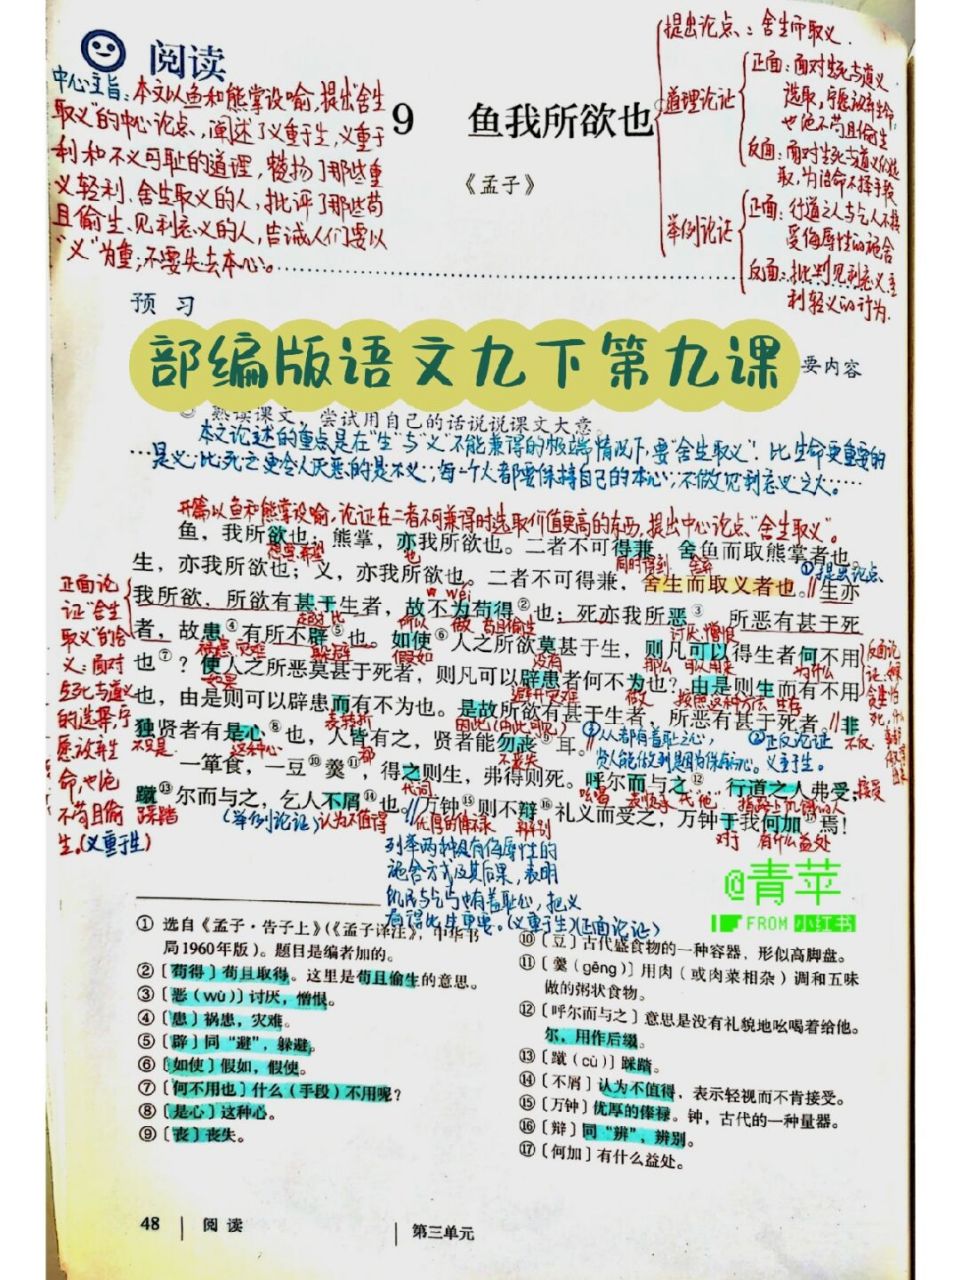 阅读
9 鱼我所欲也
《孟子》
中心主旨：本文以鱼和熊掌设喻，提出"舍生
取义"的中心论点，阐述了义重于生，义重于
利和不义可耻的道理，赞扬了那些重
义轻利、舍生取义的人，批评了那些苟
且偷生、见利忘义的人，告诫人们要以
"义"为重，不要失去本心。
提出论点：舍生而取义
道理论证
正面：面对生死与道义
选取，宁愿放弃生命，
也绝不苟且偷生
反面：面对生死与道义的选
取，为活命不择手段
举例论证
正面：行道之人与乞人不接
受侮辱性的施舍
反面：批判见利忘义重
利轻义的行为.
预 习
部编版语文九下第九课
要内容
熟读课文，尝试用自己的话说说课文大意。
本文论述的重点是在"生"与"义"不能兼得的极端情况下，要"舍生取义"．比生命更重要的
是义；比死亡更令人厌恶的是不义；每一个人都要保持自己的本心，不做见利忘义之人。
开篇以鱼和熊掌设喻，论证在二者不可兼得时选取价值更高的东西，提出中心论点"舍生取义"。
鱼，我所欲也；熊掌，亦我所欲也。二者不可得兼，舍鱼而取熊掌者也。
想要，希望 也 同时得到 舍弃 ①提出论点
生，亦我所欲也；义，亦我所欲也。二者不可得兼，舍生而取义者也。//生亦
wéi
我所欲，所欲有甚于生者，故不为苟得②也；死亦我所恶③，所恶有甚于死
超过 比 所以 做 苟且偷生 讨厌，憎恨
者，故患④有所不辟⑤也。如使⑥人之所欲莫甚于生，则凡可以得生者何不用
祸患，灾难 躲避 假如 没有 那么 可以用来 为什么
也⑦？使人之所恶莫甚于死者，则凡可以辟患者何不为也？由是则生而有不用
如果 避开灾难 做 按照这种方法 生存
也，由是则可以辟患而有不为也。是故所欲有甚于生者，所恶有甚于死者。//非
表转折 因此（由此可见） 不仅
独贤者有是心⑧也，人皆有之，贤者能勿丧⑨耳。
不只是 这种心 都 不丢失
①人人都有羞耻之心，
贤人能做到是因为保有本心。义重于生。
②正反论证
一箪食，一豆⑩羹⑪，得之则生，弗得则死。呼尔而与之⑫，行道之人弗受；
代词 吆喝 表修饰 代他 指路上饥饿的人 接受
蹴⑬尔而与之，乞人不屑⑭也。//万钟⑮则不辩⑯礼义而受之，万钟于我何加⑰焉！
踩踏 （举例论证）认为不值得 优厚的俸禄 辨别 对于 有什么益处
正面论
证"舍生
取义"的含
义：面对
生死与道义
的选择，宁
愿放弃生
命，也绝
不苟且偷
生。（义重于生）
列举两种具有侮辱性的
施舍方式及其后果，表明
饥民与乞丐也有羞耻心，把义
看得比生更重要。（义重于生）（正面论证）
@青苹
FROM 小红书
① 选自《孟子·告子上》（《孟子译注》，中华书
局1960年版）。题目是编者加的。
②〔苟得〕苟且取得。这里是苟且偷生的意思。
③〔恶（wù）〕讨厌，憎恨。
④〔患〕祸患，灾难。
⑤〔辟〕同"避"，躲避。
⑥〔如使〕假如，假使。
⑦〔何不用也〕什么（手段）不用呢？
⑧〔是心〕这种心。
⑨〔丧〕丧失。
⑩〔豆〕古代盛食物的一种容器，形似高脚盘。
⑪〔羹（gēng）〕用肉（或肉菜相杂）调和五味
做的粥状食物。
⑫〔呼尔而与之〕意思是没有礼貌地吆喝着给他。
尔，用作后缀。
⑬〔蹴（cù）〕踩踏。
⑭〔不屑〕认为不值得，表示轻视而不肯接受。
⑮〔万钟〕优厚的俸禄。钟，古代的一种量器。
⑯〔辩〕同"辨"，辨别。
⑰〔何加〕有什么益处。
48 阅 读
第三单元